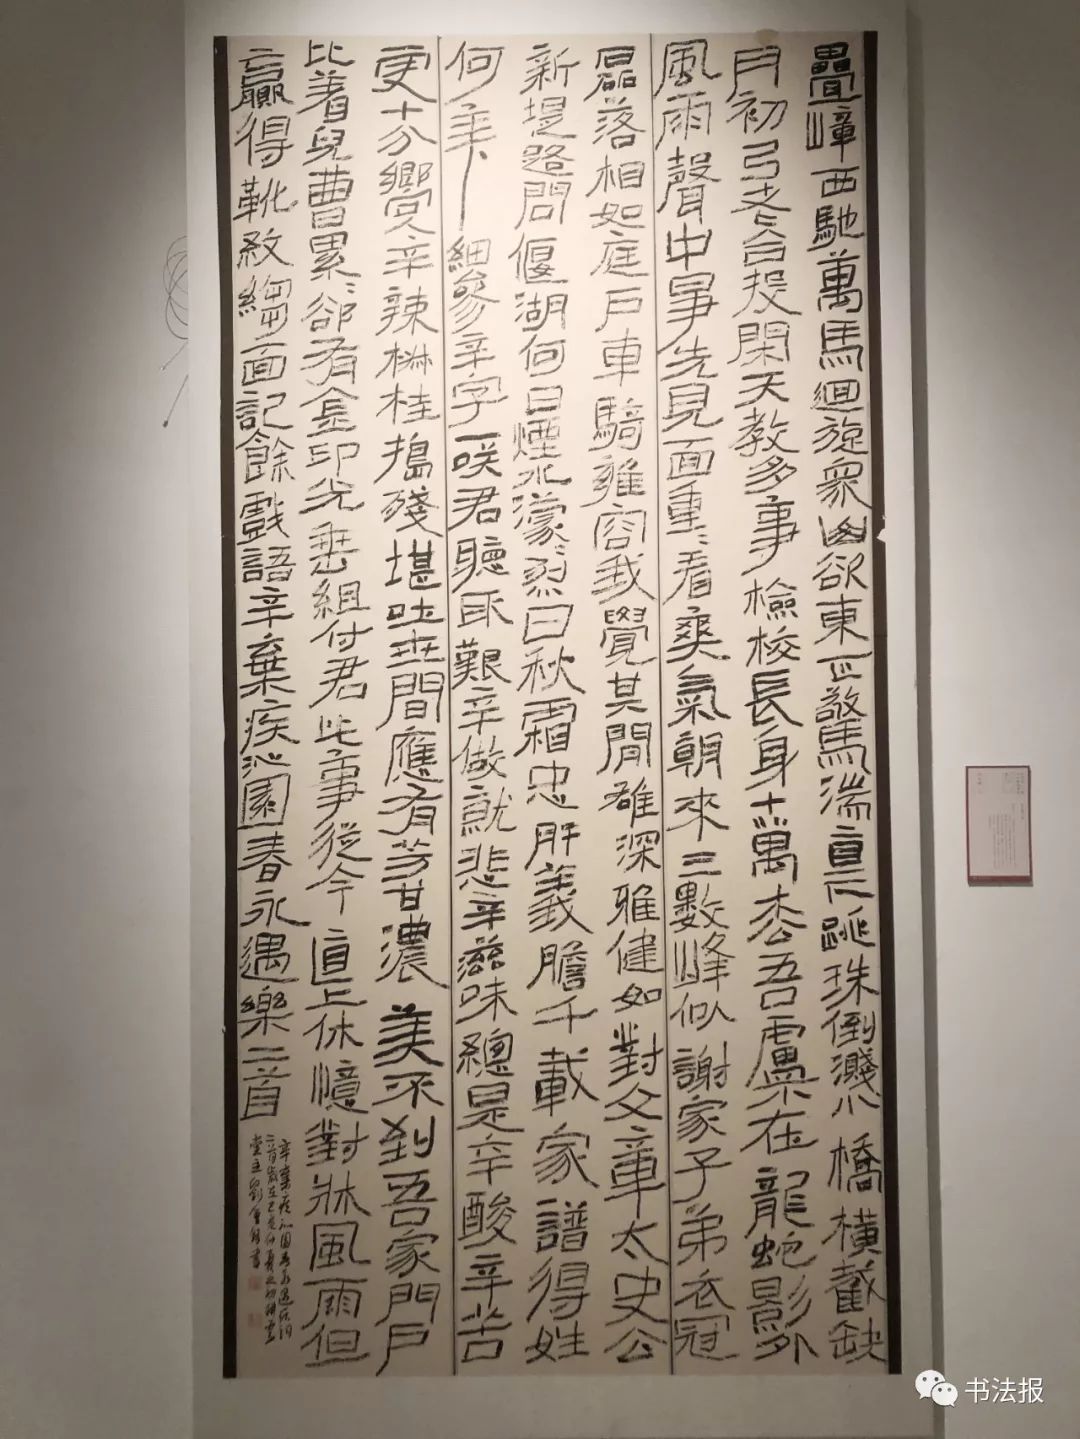 疊嶂西馳萬馬迴旋衆山欲東正驚湍直下跳珠倒濺小橋橫截缺
月初弓老合投閑天教多事檢校長身十萬松吾廬小在龍蛇影外
風雨聲中爭先見面重〻看爽氣朝來三數峰似謝家子弟衣冠
磊落相如庭戶車騎雍容我覺其間雄深雅健如對文章太史公
新堤路問偃湖何日煙水濛〻烈日秋霜忠肝義膽千載家譜得姓
何年細參辛字一笑君聽取艱辛做就悲辛滋味總是辛酸辛苦
更十分嚮人辛辣椒桂搗殘堪吐世間應有芳甘濃美不到吾家門戶
比著兒曹累〻卻有金印光垂組付君此事從今直上休憶對牀風雨但
贏得靴紋縐面記餘戲語辛棄疾沁園春永遇樂二首
辛棄疾沁園春永遇樂詞
二首歲在己亥仲夏之初
書法报